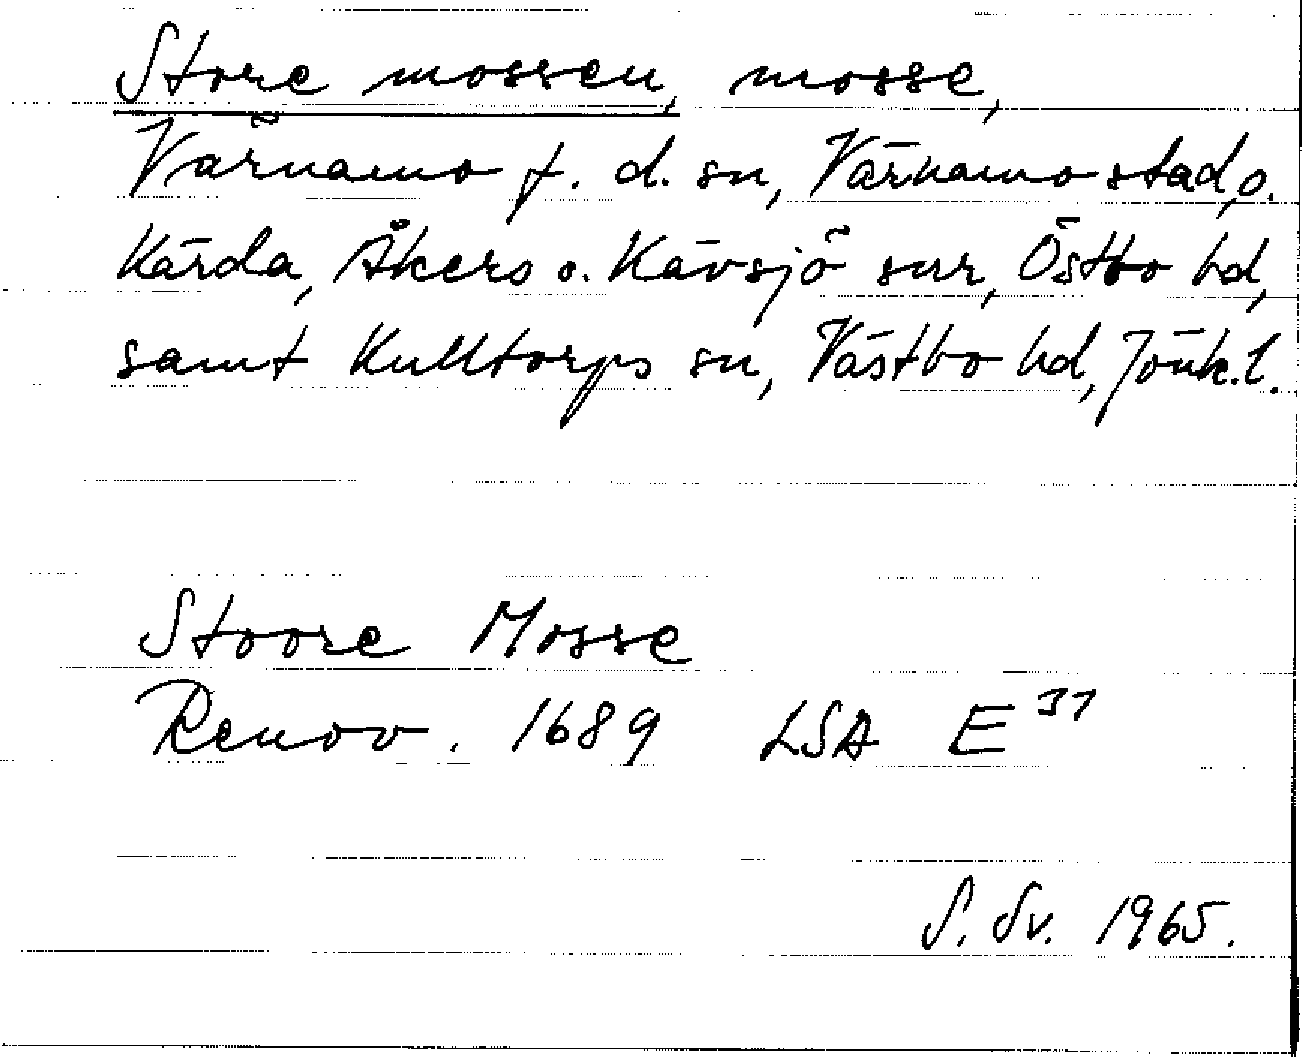 Store mossen, mosse,
Värnamo f. d. sn, Värnamo stad, o.
Kärda, Åkers o. Kävsjö snr, Östbo hd,
samt Kulltorps sn, Västbo hd, Jönk. l.
Stoore Mosse
Renov. 1689 LSA E 31
S. Sv. 1965.